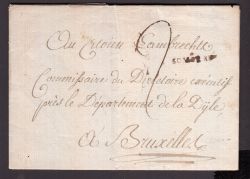 Au Citoien Lambrechts
Commissaire du Directoire executif
près le Département de la Dyle
à Bruxelles